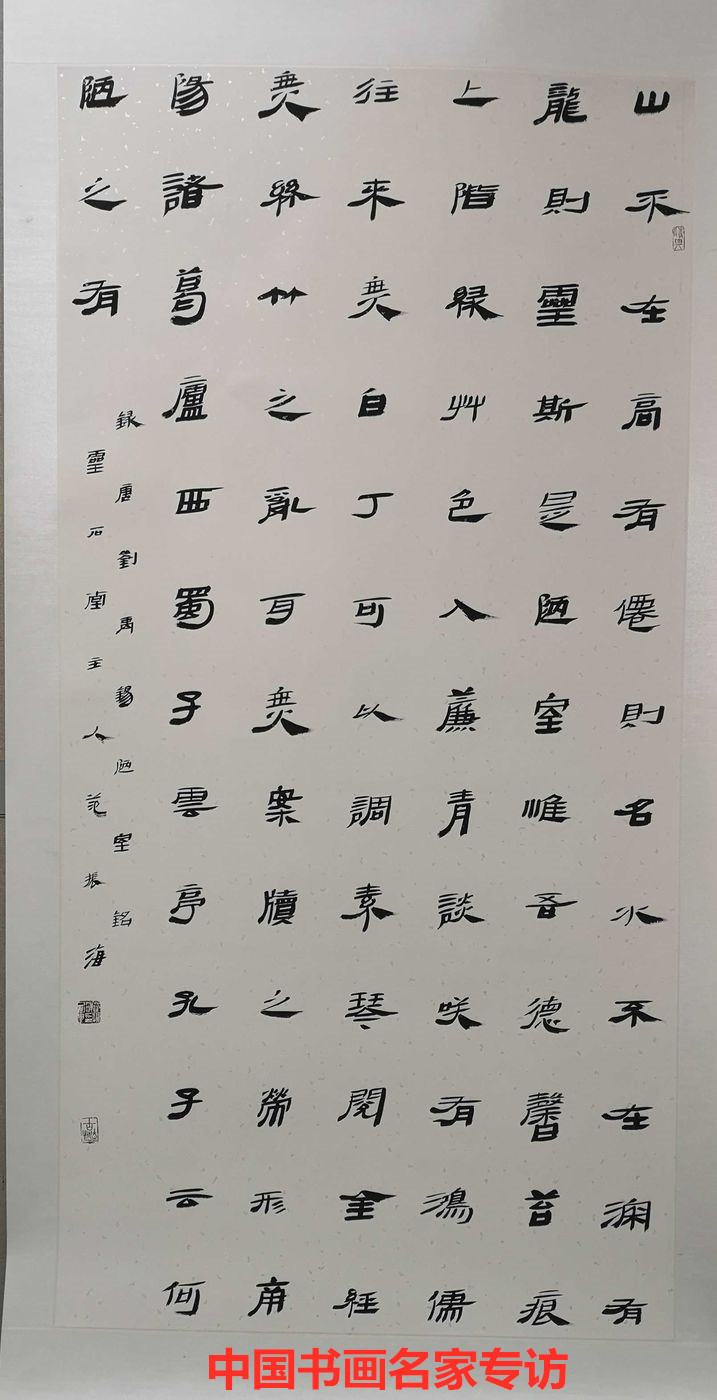 山不在高有僊則名水不在渊有
龍則靈斯是陋室惟吾德馨苔痕
上階緑艸色入薕青談咲有鴻儒
往來無白丁可以調素琴閱金經
無絲竹之亂耳無案牘之勞形南
陽諸葛廬西蜀子雲亭孔子云何
陋之有
録唐劉禹錫陋室銘
靈石主人范振海
中国书画名家专访